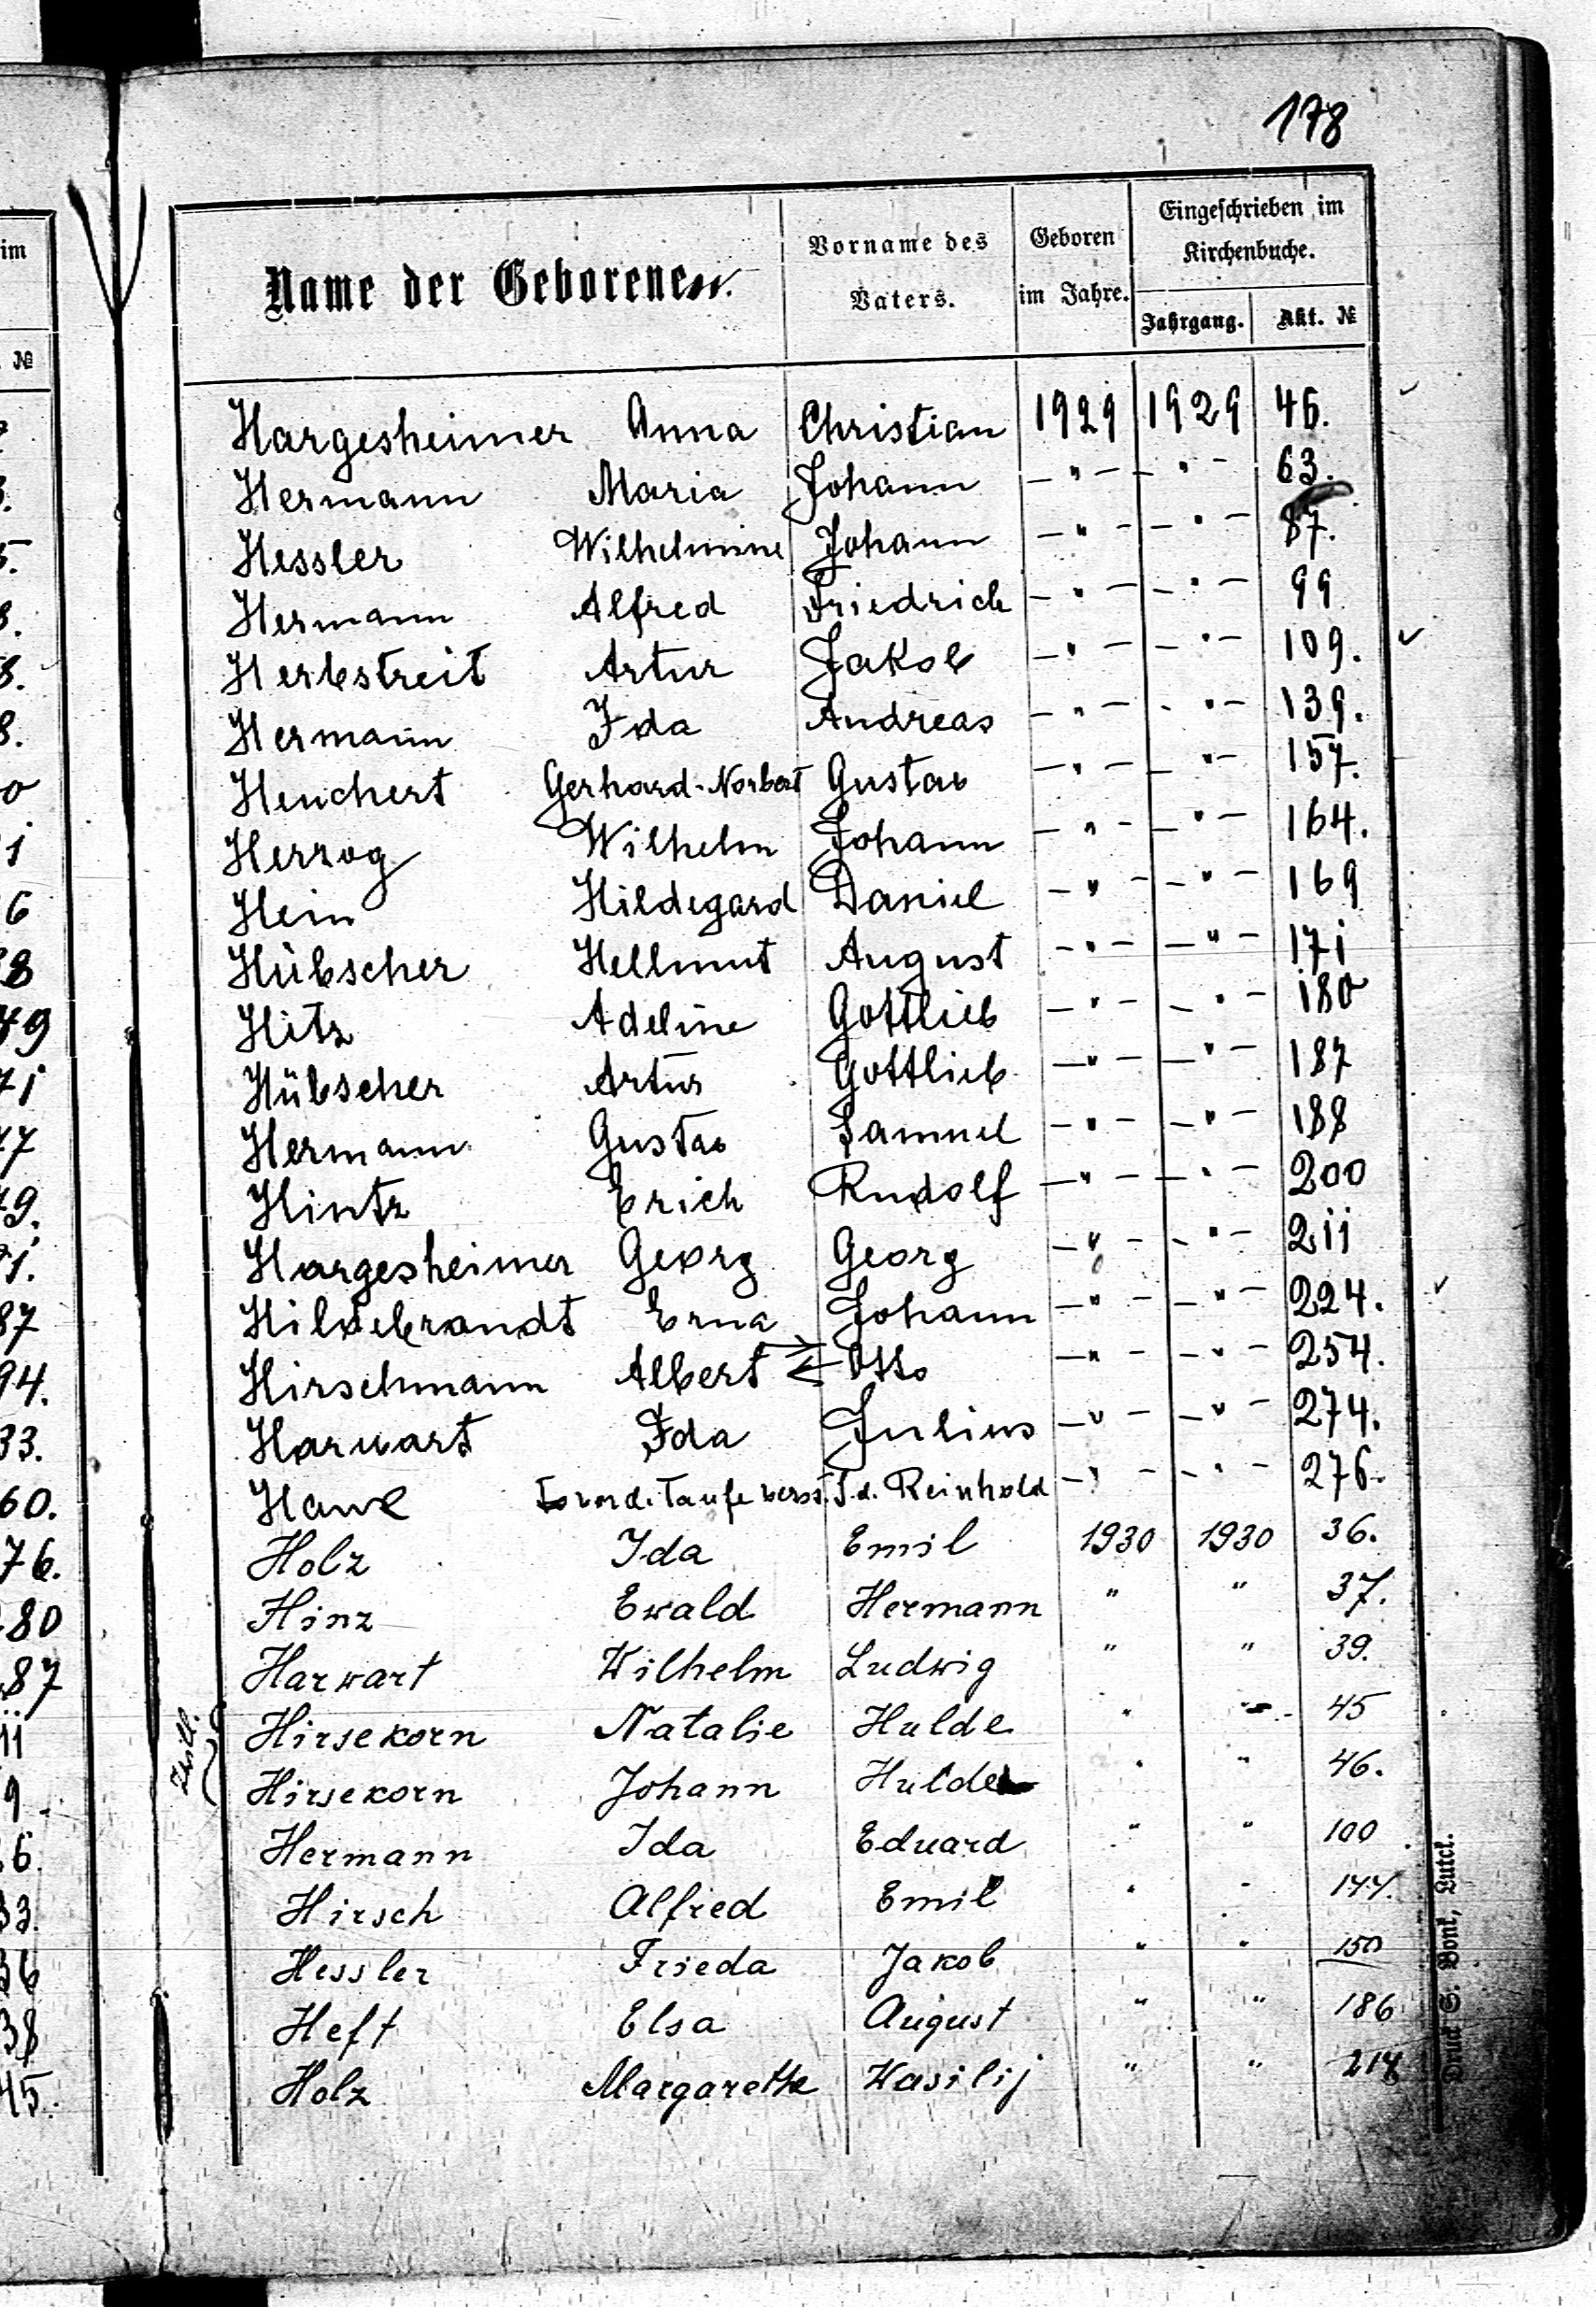 178
Name der Geborenen.
Vorname des Vaters.
Geboren im Jahre.
Eingeschrieben im Kirchenbuche.
Jahrgang. Akt. №
Hargesheimer Anna Christian 1929 1929 46.
Hermann Maria Johann -"- -"- 63.
Hessler Wilhelmine Johann -"- -"- 87.
Hermann Alfred Friedrich -"- -"- 99
Herbstreit Artur Jakob -"- -"- 109.
Hermann Ida Andreas -"- -"- 139.
Henchert Gerhard-Norbert Gustav -"- -"- 157.
Herzog Wilhelm Johann -"- -"- 164.
Hein Hildegard Daniel -"- -"- 169
Hübscher Hellmut August -"- -"- 171
Hitz Adeline Gottlieb -"- -"- 180
Hübscher Artur Gottlieb -"- -"- 187
Hermann Gustav Samuel -"- -"- 188
Hintz Erich Rudolf -"- -"- 200
Hargesheimer Georg Georg -"- -"- 211
Hildebrandt Erna Johann -"- -"- 224.
Hirschmann Albert Otto -"- -"- 254.
Harwart Ida Julius -"- -"- 274.
vor d. Taufe verst. Reinhold -"- -"- 276.
Holz Ida Emil 1930 1930 36.
Hinz Ewald Hermann " " 37.
Harwart Wilhelm Ludwig " " 39.
Hirsekorn Natalie Hulde " " 45
Hirsekorn Johann Hulde " " 46.
Hermann Ida Eduard " " 100
Hirsch Alfred Emil " "
Hessler Frieda Jakob " " 150
Heft Elsa August " " 186
Holz Margarethe Wasilij " "
Druck S. Bonk, Lutck.
im
№